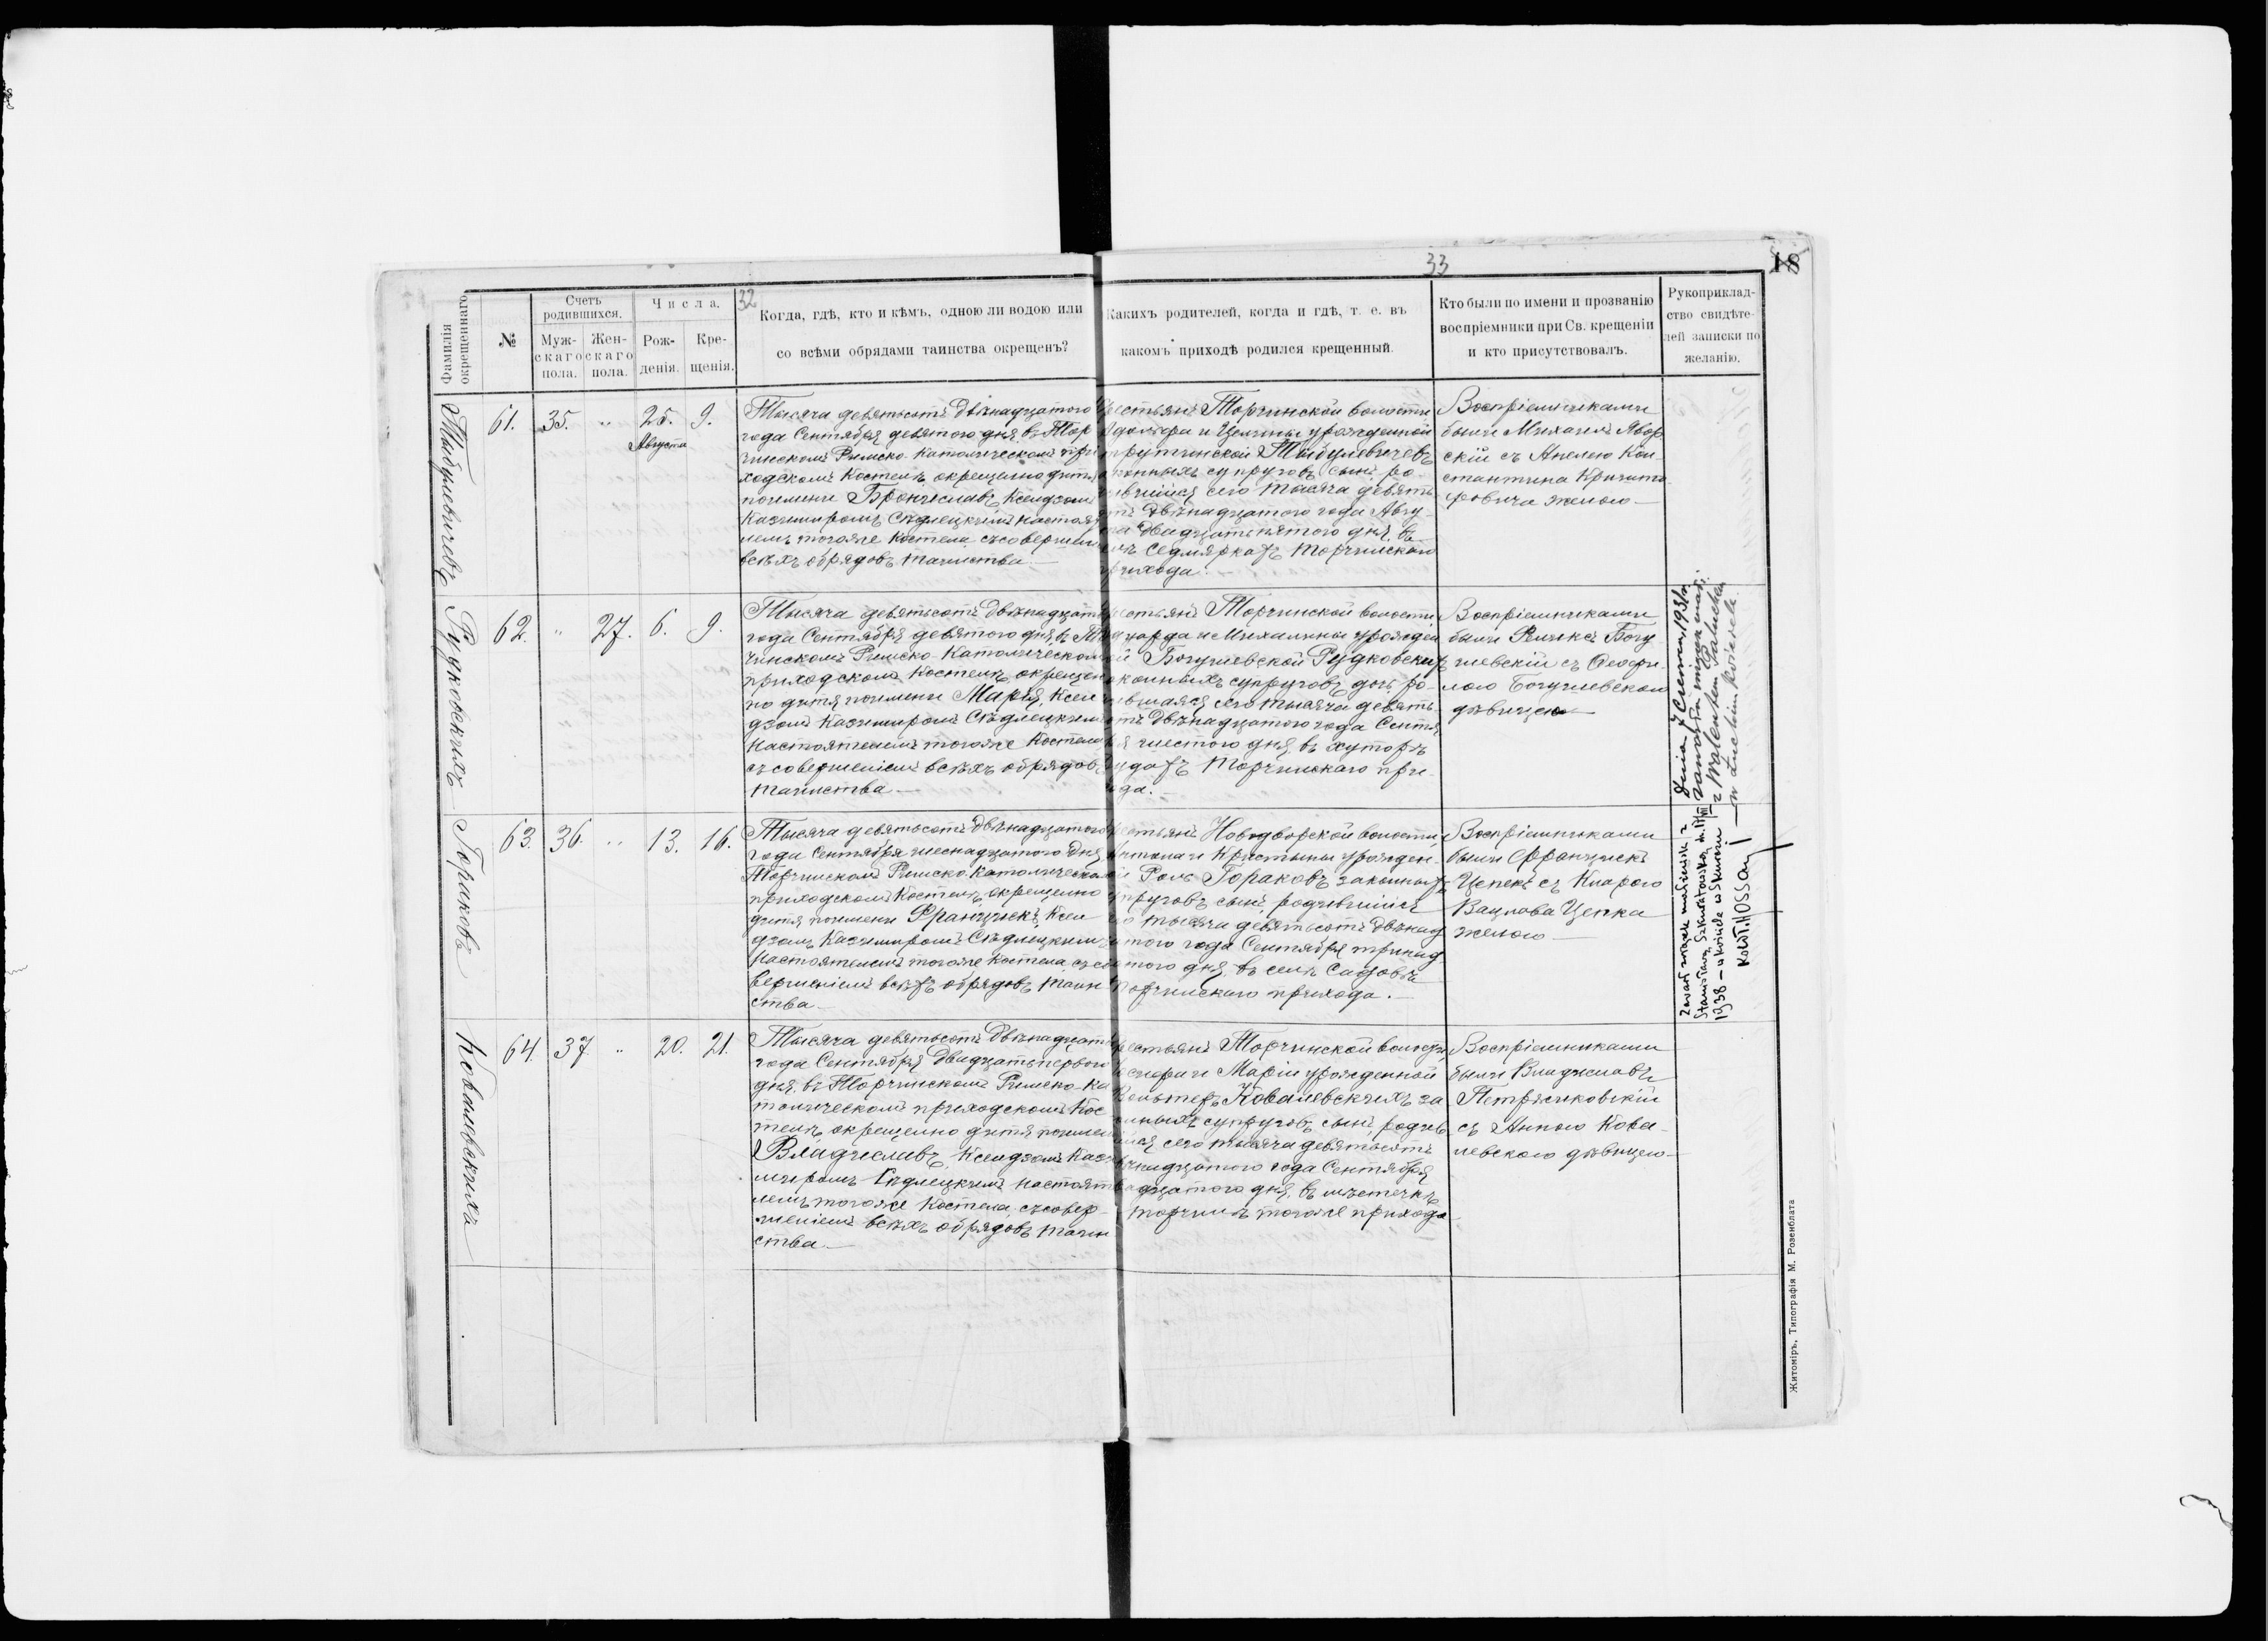 32
33
18
Фамилія окрещеннаго.
№
Счетъ родившихся.
Муж-скаго пола.
Жен-скаго пола.
Числа.
Рож-денія.
Кре-щенія.
Когда, гдѣ, кто и кѣмъ, одною ли водою или
со всѣми обрядами таинства окрещенъ?
Какихъ родителей, когда и гдѣ, т. е. въ
какомъ приходѣ родился крещенный.
Кто были по имени и прозванію
воспріемники при Св. крещеніи
и кто присутствовалъ.
Рукоприклад-
ство свидѣте-
лей записки по
желанію.
61. 35. " 25. 9.
Августа
Тысяча девятьсотъ двѣнадцатого
года Сентября девятого дня, въ Тор
чинскомъ Римско-Католическомъ при
ходскомъ Костелѣ окрещено дитя
поимени Брониславъ, Ксендзомъ
Казимиромъ Сѣдлецкимъ Настоя
лемъ тогоже Костела съсовершен
всѣхъ обрядовъ таинства.—
рестьянъ Торчинской волости
урожденной
конныхъ супруговъ сынъ, ро
ившійся сего тысяча девять
отъ двѣнадцатого года Авгу
та двадцатьпятого дня, въ
елѣ Седмяркахъ Торчинскаго
прихода.—
Воспріемниками
были Михаилъ Явор
скій съ Анелею Кон
стантина
женою—
Рудковскихъ
62. " 27. 6. 9.
Тысяча девятьсотъ двѣнадцат
года Сентября девятого дня, въ То
чинскомъ Римско-Католическом
приходскомъ Костелѣ окреще
но дитя поимени Марія, Ксен
дзомъ Казимиромъ Сѣдлецким
Настоятелемъ тогоже Костела
съсовершеніемъ всѣхъ обрядовъ
таинства—
рестьянъ Торчинской волости,
и Михалины урожден
ой Богушевской Рудковских
конныхъ супруговъ дочь, ро-
ившаяся сего тысяча девять
отъ двѣнадцатого года Сентя
ря шестого дня, въ хуторѣ
Торчинскаго при-
ода.—
Воспріемниками
были Феликсъ Богу
шевскій съ Теофи-
лою Богушевскою
дѣвицею—
Гораковъ
63. 36. " 13. 16.
Тысяча девятьсотъ двѣнадцатого
года Сентября шеснадцатого дня,
Торчинскомъ Римско-Католическом
приходскомъ Костелѣ, окрещено
дитя поимени Францискъ, Ксен
дзомъ Казимиромъ Сѣдлецким
Настоятелемъ тогоже Костела, съсо
вершеніемъ всѣхъ обрядовъ таин
ства—
рестьянъ Новодворской волости,
Антона и Кристыны урожден-
Гораковъ законных
упруговъ сынъ, родившійся
го тысяча девятьсотъ двѣнад
атого года Сентября тринад
атого дня, въ селѣ Садовѣ
Торчинскаго прихода.—
Воспріемниками
были Францискъ
Цепекъ съ Кларою
Вацлава Цепка
женою—
Ковалевскихъ
64. 37. " 20. 21.
Тысяча девятьсотъ двѣнадцато
года Сентября двадцатьпервого
дня, въ Торчинскомъ Римско-Ка
толическомъ приходскомъ Кос
телѣ, окрещено дитя поимен
Владиславъ, Ксендзомъ Кази
миромъ Сѣдлецкимъ Настояте
лемъ тогоже Костела, съсовер-
шеніемъ всѣхъ обрядовъ таин
ства—
рестьянъ Торчинской волости,
и Маріи урожденной
Ковалевскихъ за
онныхъ супруговъ сынъ, родив
ійся сего тысяча девятьсотъ
вѣнадцатого года Сентября
вадцатого дня, въ мѣстечкѣ
Торчинѣ тогоже прихода—
Воспріемниками
были Владиславъ
съ Анною Кова-
левскою дѣвицею—
Dnia 7 Czerwca 1931 r.
zawarła związek małż.
z Walentem
w Łuckim kościele.
Zawarł związek małżeński z
Stanisławą
1938 — w kościele w
Житоміръ, Типографія М. Розенблата